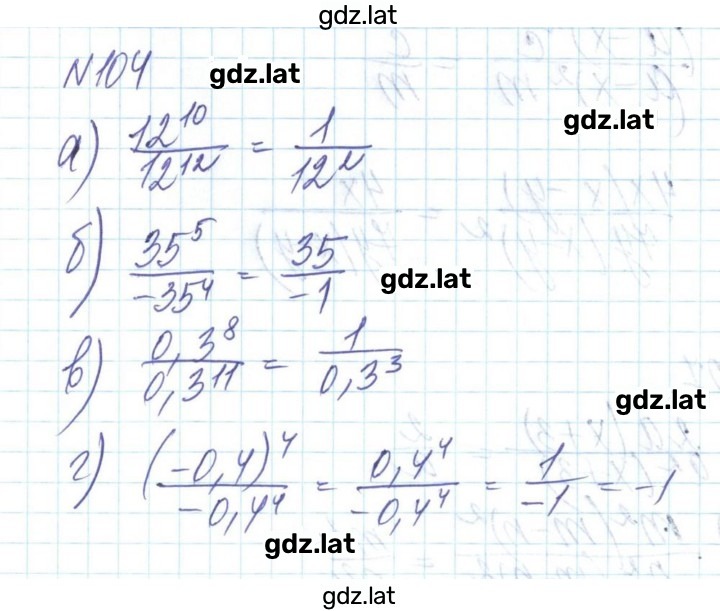 gdz.lat
N104
gdz.lat
gdz.lat
а) 12^10/12^12 = 1/12^2
б) 35^5/-35^4 = 35/-1
gdz.lat
в) 0,3^8/0,3^11 = 1/0,3^3
gdz.lat
г) (-0,4)^4/-0,4^4 = 0,4^4/-0,4^4 = 1/-1 = -1
gdz.lat
gdz.lat